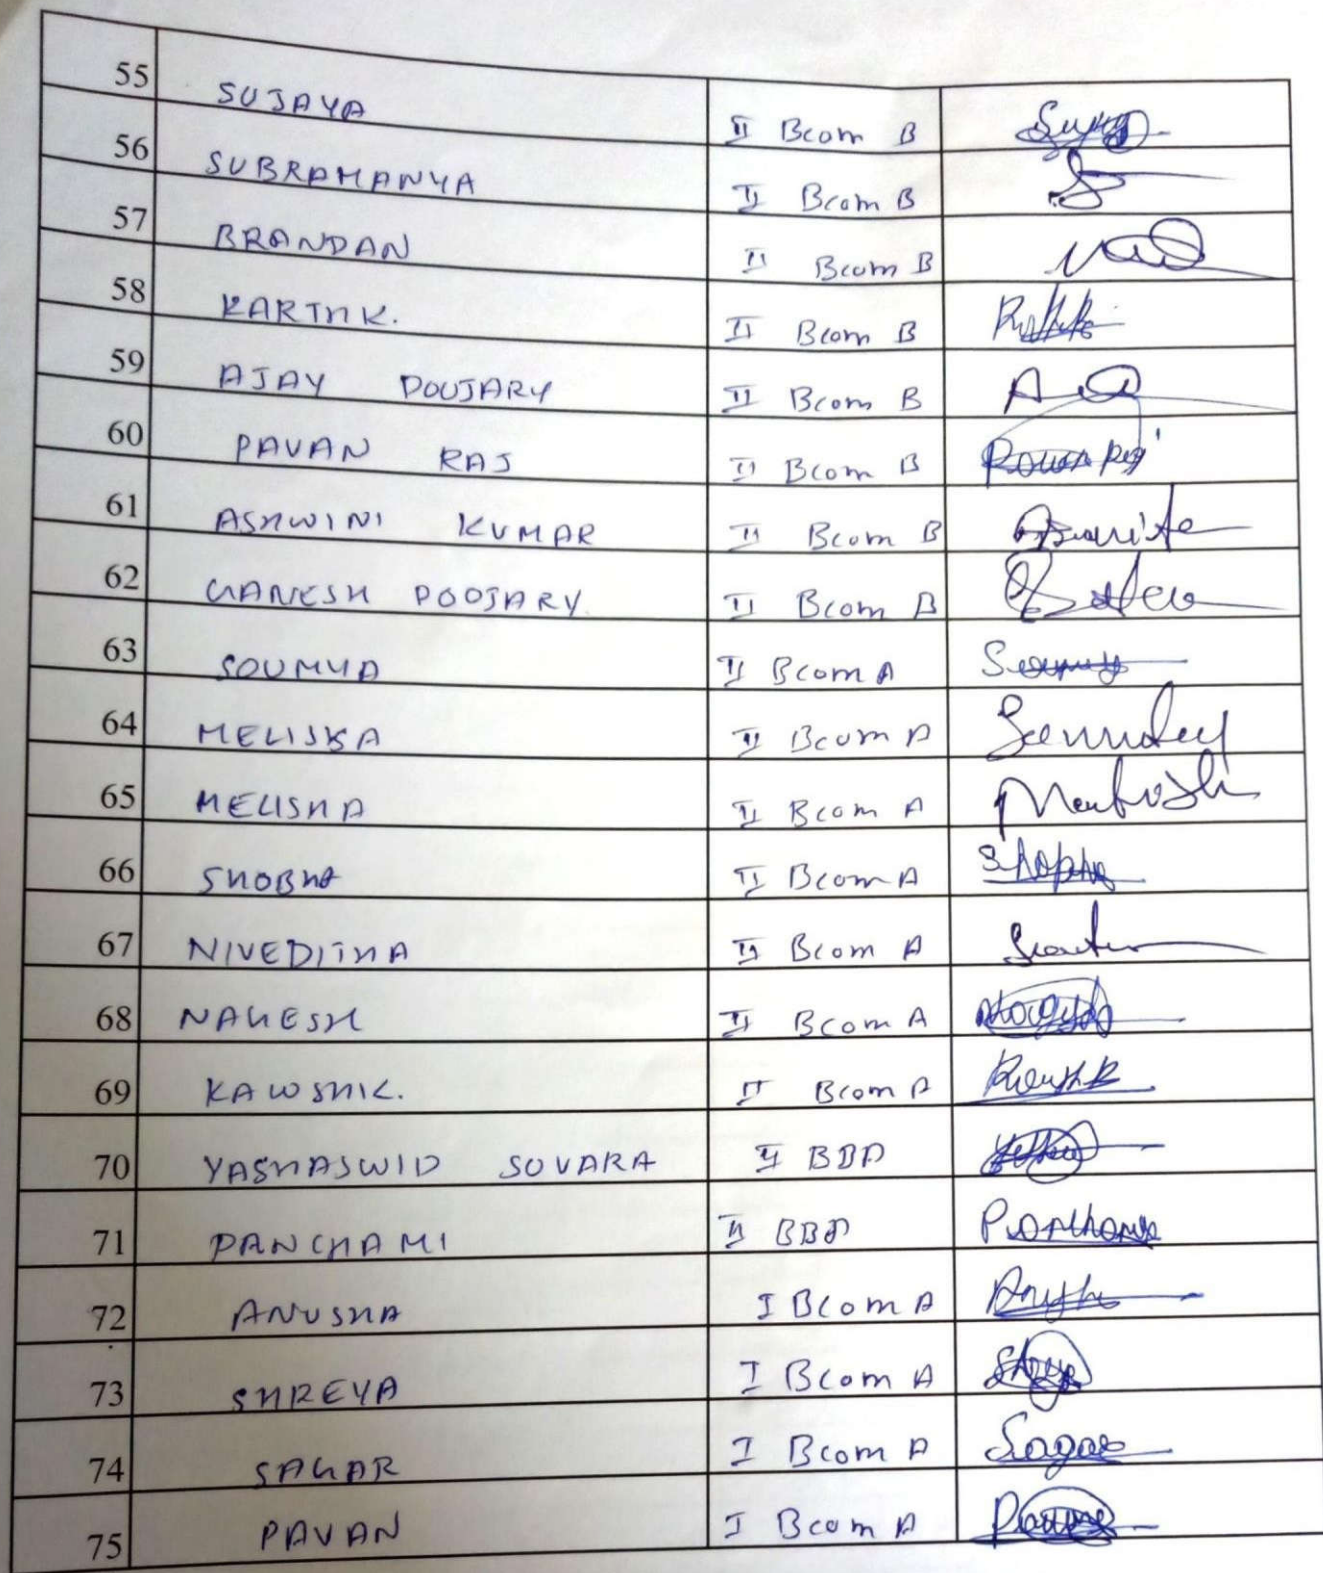 55 SUJAYA II Bcom B
56 SUBRAMANYA II Bcom B
57 BRANDAN II Bcom B
58 KARTHK. II Bcom B
59 AJAY POOJARY II Bcom B
60 PAVAN RAJ II Bcom B Pavan Raj
61 ASHWINI KUMAR II Bcom B
62 GANESH POOJARY II Bcom B
63 SOUMYA II Bcom A
64 MELISSA II Bcom A
65 MELISHA II Bcom A
66 SHOBHA II Bcom A
67 NIVEDITHA II Bcom A
68 NAGESH II Bcom A
69 KAWSHIK. II Bcom A
70 YASHASWID SUVARA II BBA
71 PANCHAMI II BBA
72 ANUSHA I Bcom A
73 SHREYA I Bcom A
74 SAGAR I Bcom A Sagar
75 PAVAN I Bcom A